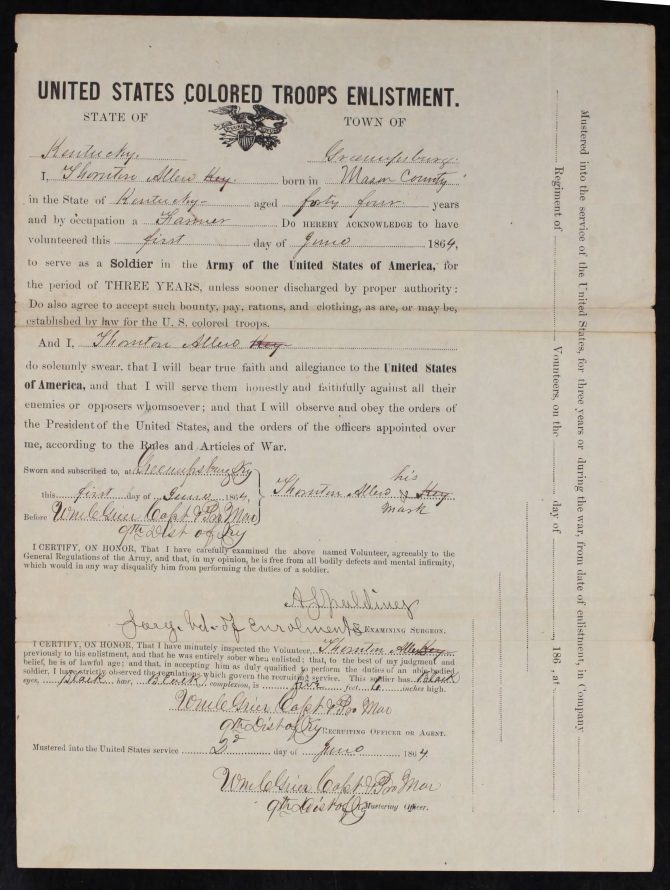 UNITED STATES COLORED TROOPS ENLISTMENT.
STATE OF TOWN OF
Kentucky. Greenupsburg.
I, Thornton Allen Key. born in Mason County
in the State of Kentucky - aged forty four years
and by occupation a Farmer Do HEREBY ACKNOWLEDGE to have
volunteered this first day of June 1864,
to serve as a Soldier in the Army of the United States of America, for
the period of THREE YEARS, unless sooner discharged by proper authority:
Do also agree to accept such bounty, pay, rations, and clothing, as are, or may be,
established by law for the U. S. colored troops.
And I, Thornton Allen Key
do solemnly swear, that I will bear true faith and allegiance to the United States
of America, and that I will serve them honestly and faithfully against all their
enemies or opposers whomsoever; and that I will observe and obey the orders of
the President of the United States, and the orders of the officers appointed over
me, according to the Rules and Articles of War.
Sworn and subscribed to, at Greenupsburg Ky
this first day of June 1864,
Before Wm C Grier Capt & Pro Mar
9th Dist of Ky
his
Thornton Allen X Key
mark
I CERTIFY, ON HONOR, That I have carefully examined the above named Volunteer, agreeably to the
General Regulations of the Army, and that, in my opinion, he is free from all bodily defects and mental infirmity,
which would in any way disqualify him from performing the duties of a soldier.
A J Spalding
Surg. bd. of Enrolment EXAMINING SURGEON.
I CERTIFY, ON HONOR, That I have minutely inspected the Volunteer, Thornton Allen Key
previously to his enlistment, and that he was entirely sober when enlisted; that, to the best of my judgment and
belief, he is of lawful age; and that, in accepting him as duly qualified to perform the duties of an able-bodied
soldier, I have strictly observed the regulations which govern the recruiting service. This soldier has black
eyes, black hair, black complexion, is five feet 6 inches high.
Wm C Grier Capt & Pro Mar
9th Dist of Ky RECRUITING OFFICER OR AGENT.
Mustered into the United States service 2d day of June 1864.
Wm C Grier Capt & Pro Mar
9th Dist of Ky Mustering Officer.
Mustered into the service of the United States, for three years or during the war, from date of enlistment, in Company
Regiment of Volunteers, on the day of 186 , at